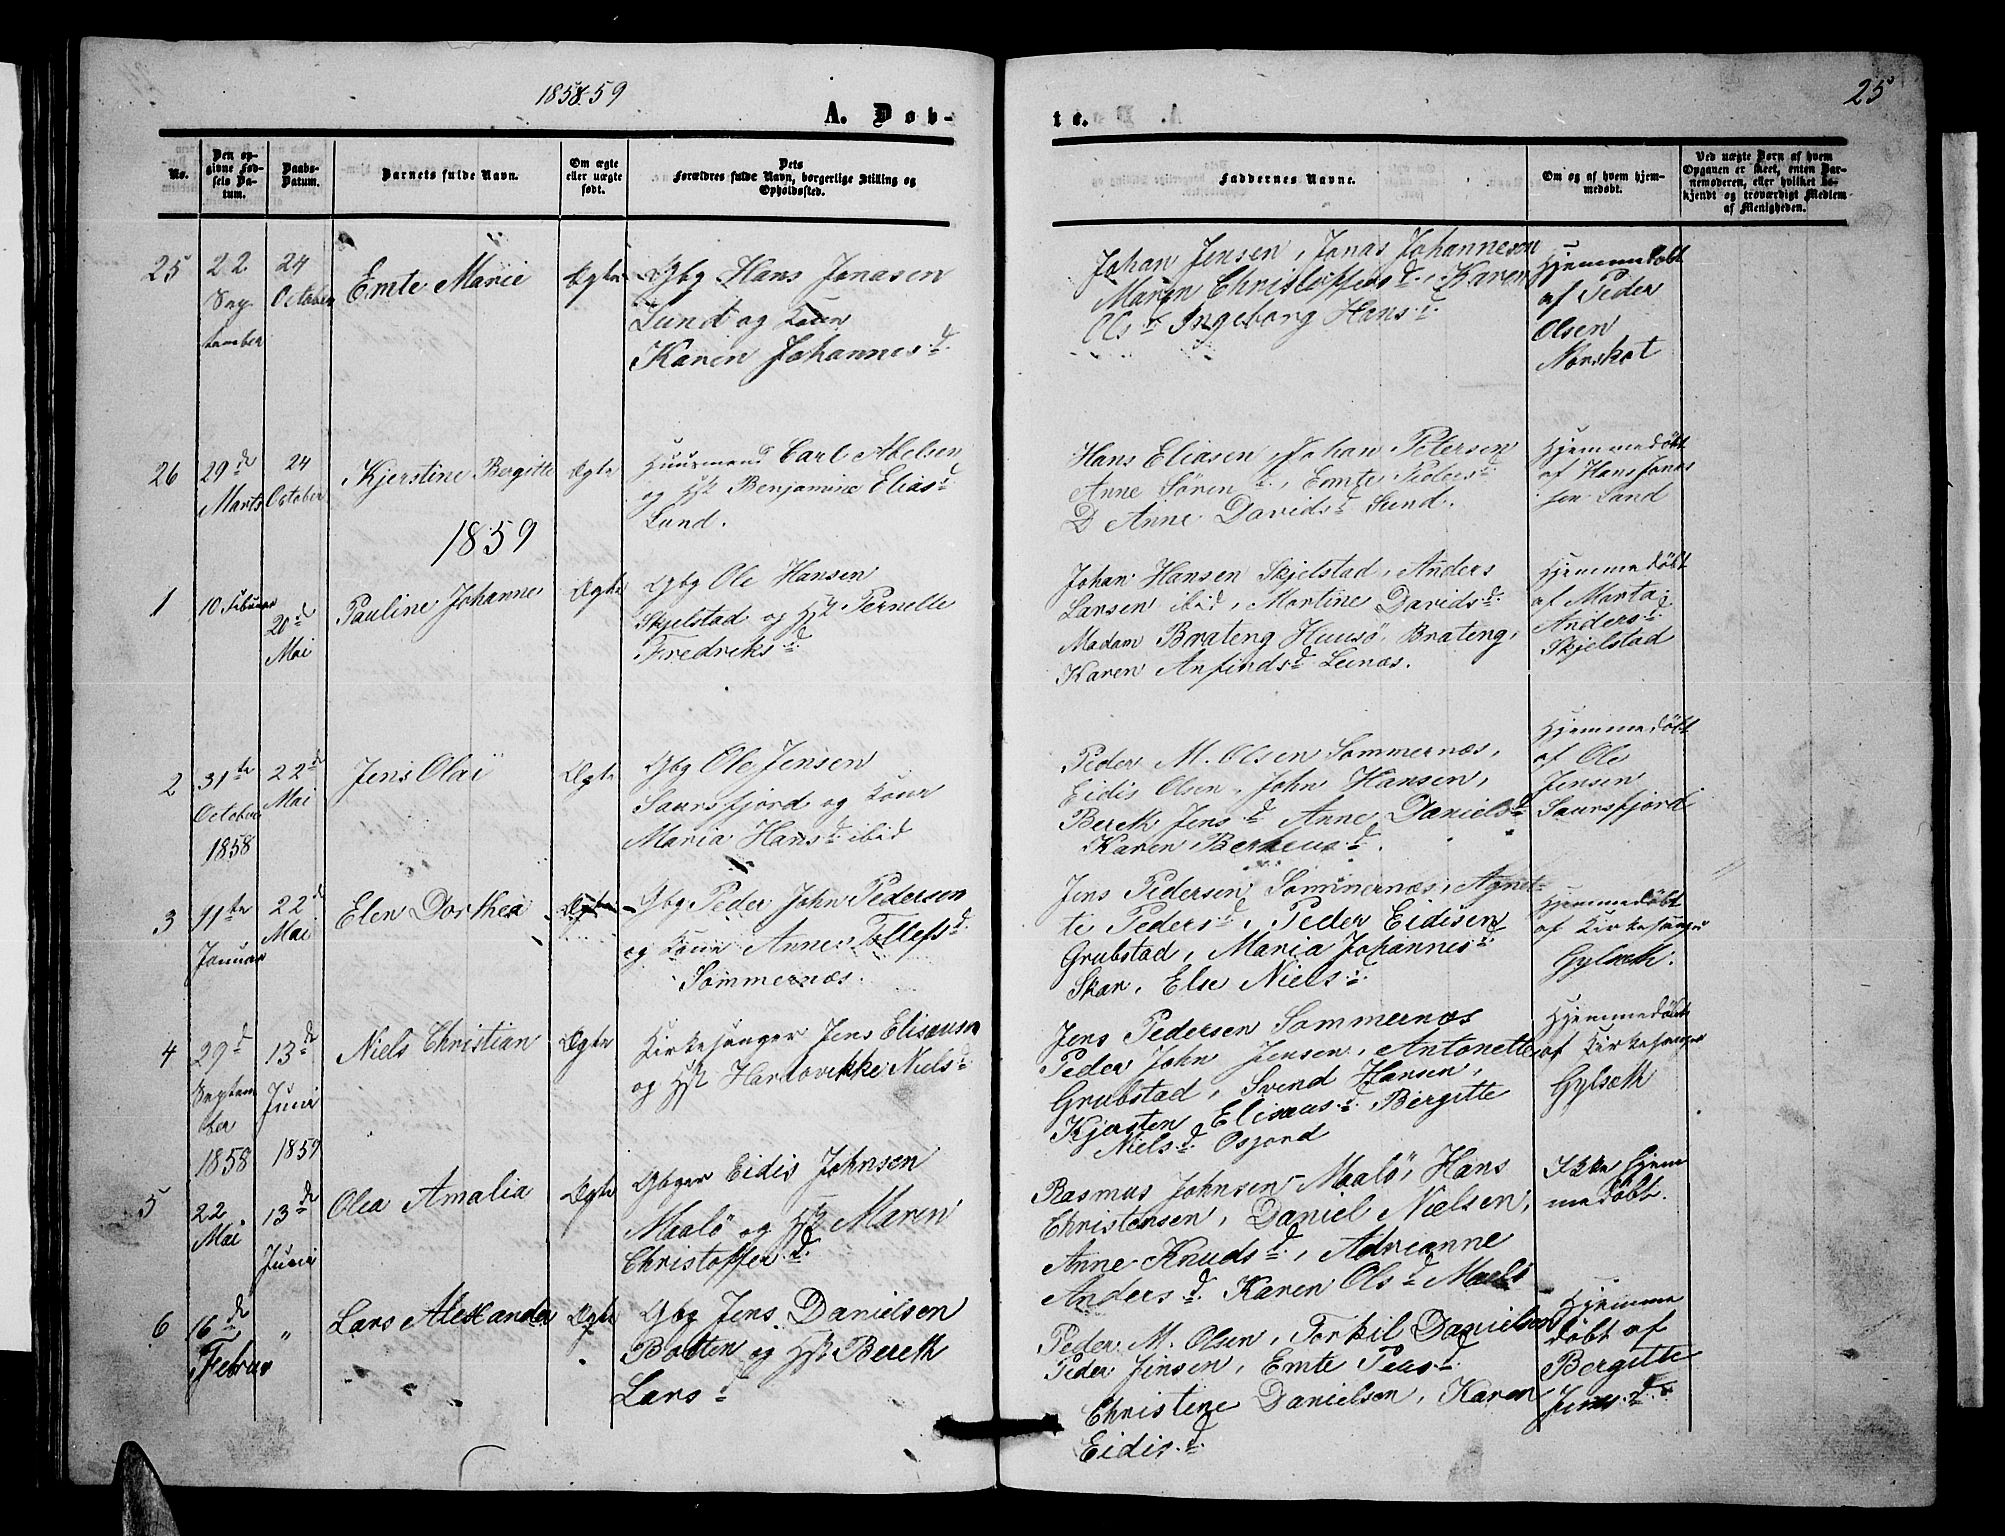 1858-59
25
A. Døb-
te.
No.
Den op-
givne Fød-
sels Da-
tum.
Daabs-
Datum.
Barnets fulde Navn.
Om ægte
eller uægte
født.
Dets
Forældres fulde Navn, borgerlige Stilling og
Opholdssted.
Faddernes Navne.
Om og af hvem hjem-
medøbt.
Ved uægte Børn af hvem
Opgaven er skeet, enten Bar-
nemoderen, eller hvilket be-
kjendt og troværdigt Medlem
af Menigheden.
25
22
Sep
tember
24
October
Emte Marie
Ægte
Gbg Hans Jonasen
Lund og Kone
Karen Johannesd.
Johan Jensen, Jonas Johannesen
Maren Christoffersd., Karen
Olsd. Ingeborg Hansd.
Hjemmedøbt
af Peder
Olsen
Norskot
26
29de
Marts
24
October
Kjerstine Bergitte
Ægte
Huusmand Carl Abelsen
og Hst Benjamine Eliasd.
Lund.
Hans Eliasen, Johan Petersen
Anne Sörend., Emte Peders
D Anne Davidsd. Lund.
Hjemmedøbt
af Hans Jonas
sen Lund
1859
1
10. Februar
20de
Mai
Pauline Johanne
Ægte
Gbg Ole Hansen
Skjelstad og Hst Pernelle
Fredriksd.
Johan Hansen Skjelstad, Anders
Larsen ibid, Martine Davidsd.
Madam Brateng Huusö, Brateng,
Karen Anfindsd. Leinæs.
Hjemmedøbt
af Marta
Andersd.
Skjelstad
2
31te
October
1858
22de
Mai
Jens Olai
Ægte
Gbg Ole Jensen
Saursfjord og Kone
Maria Hansd. ibid
Peder M. Olsen Sommernæs,
Eidis Olsen, John Hansen,
Bereth Jensd. Anne Danielsd.
Karen Berheusd.
Hjemmedøbt
af Ole
Jensen
Saursfjord
3
11te
Januar
22de
Mai
Elen Dorthea
Ægte
Gbg Peder John Pedersen
og Kone Anne Tollefsd.
Sommernæs.
Jens Pedersen Sommernæs, Agnet-
te Pedersd., Peder Eidisen
Grubstad, Maria Johannesd.
Skar, Else Nielsd.
Hjemmedøbt
af Kirkesanger
Gylseth.
4
29de
Septem
ber
1858
13de
Juni
1859
Niels Christian
Ægte
Kirkesanger Jens Elisæusen
og Hst Hartvikke Nielsd.
Jens Pedersen Sommernæs
Peder John Jensen, Antonette
Grubstad, Svend Hansen,
Kjersten Elisæusd., Bergitte
Nielsd. Osjord
Hjemmedøbt
af Kirkesanger
Gylseth
5
22
Mai
13de
Juni
Olea Amalia
Ægte
Gbger Eidis Johnsen
Maalö og Hst Maren
Christofferd.
Rasmus Johnsen Maalö, Hans
Christensen, Daniel Nielsen,
Anne Knudsd., Adreanne
Andersd. Karen Olsd. Maalö
Ikke hjem
medøbt.
6
16de
Februar
"
Lars Alexander
Ægte
Gbg Jens Danielsen
Botten og Hst Bereth
Larsd.
Peder M. Olsen, Torkil Danielsen
Peder Jensen, Emte Pedersd.
Christine Danielsen, Karen
Eidisd.
Hjemme
døbt af
Bergitte
Jensd.